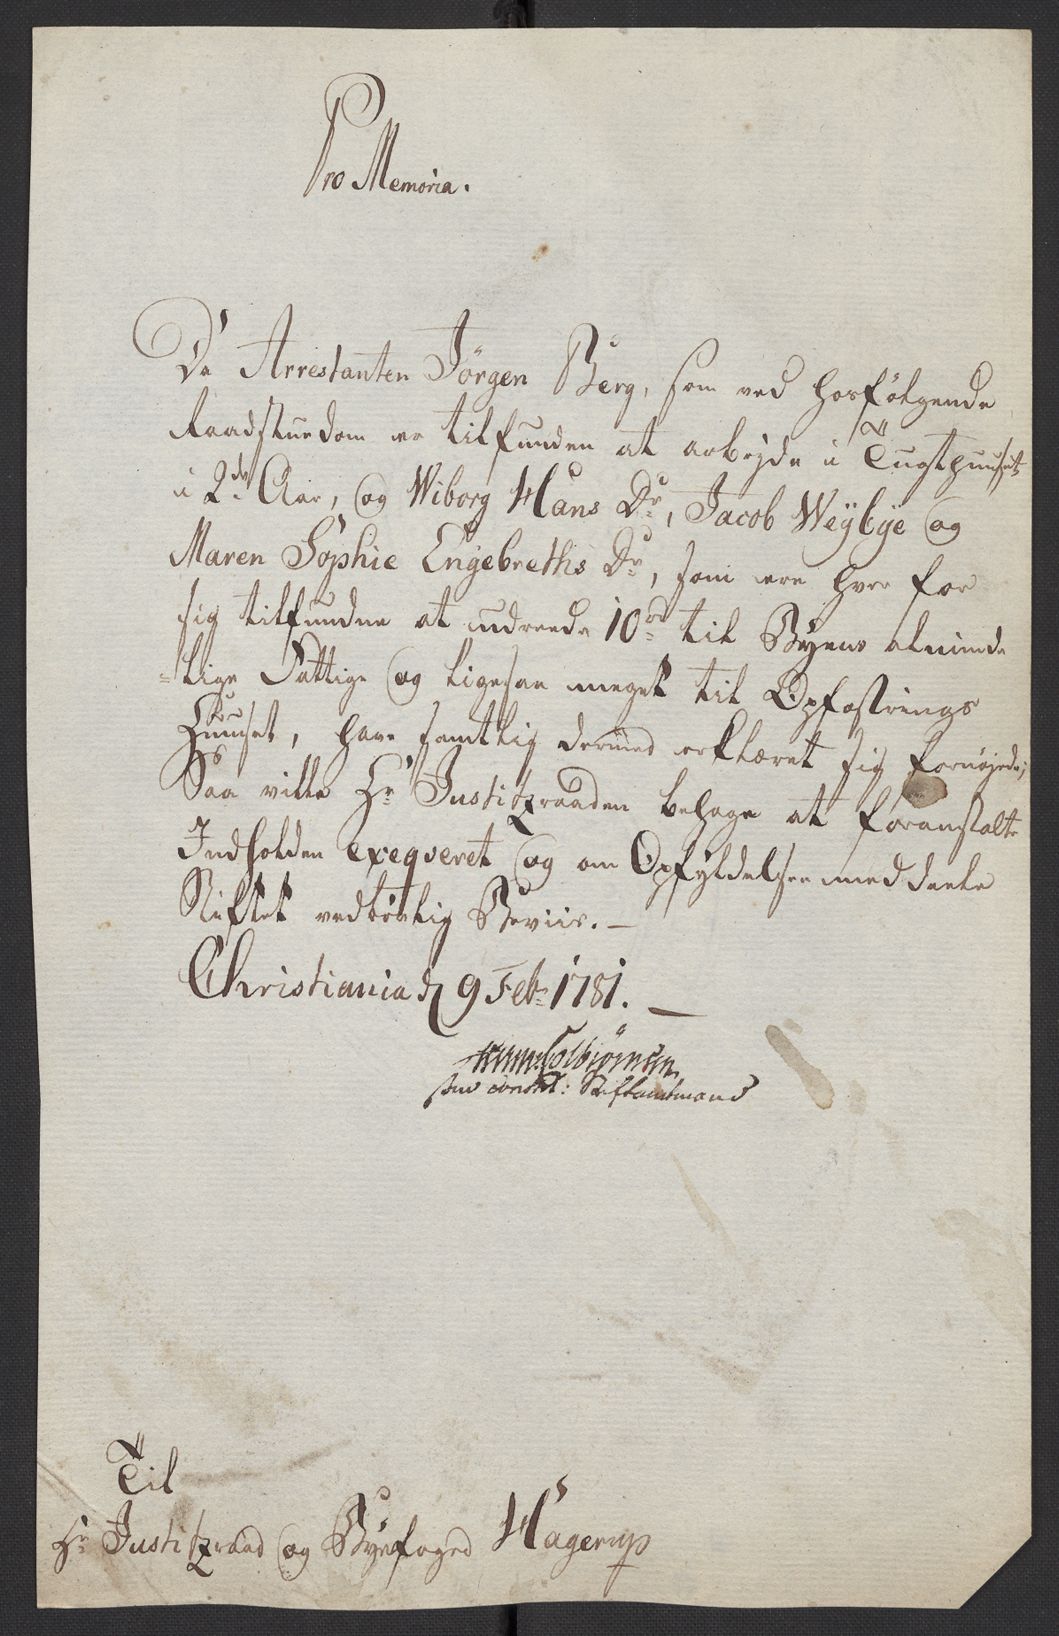 Pro Memoria.
Da Arrestanten Jörgen Berg, som ved hosfölgende
Raadstuedom er tilfunden at arbejde i Tugthuuset
i 2de Aar, og Wiborg Hans Dr, Jacob Weybye og
Maren Sophie Engebreths Dr, som ere hver for
sig tilfundne at udreede 10 rd til Byens alminde
=lige Fattige og ligesaa meget til Opfostrings
Huuset, have samtlig dermed erklæret sig fornøjede;
Saa ville Hr Justitzraaden behage at foranstalte
Indholden exeqveret og om Opfyldelsen meddeele
Stiftet vedbørlig Beviis. —
Christiania d 9 Febr 1781. —
const: Stiftamtmand
Til
Hr Justitzraad og Byefoged Hagerup